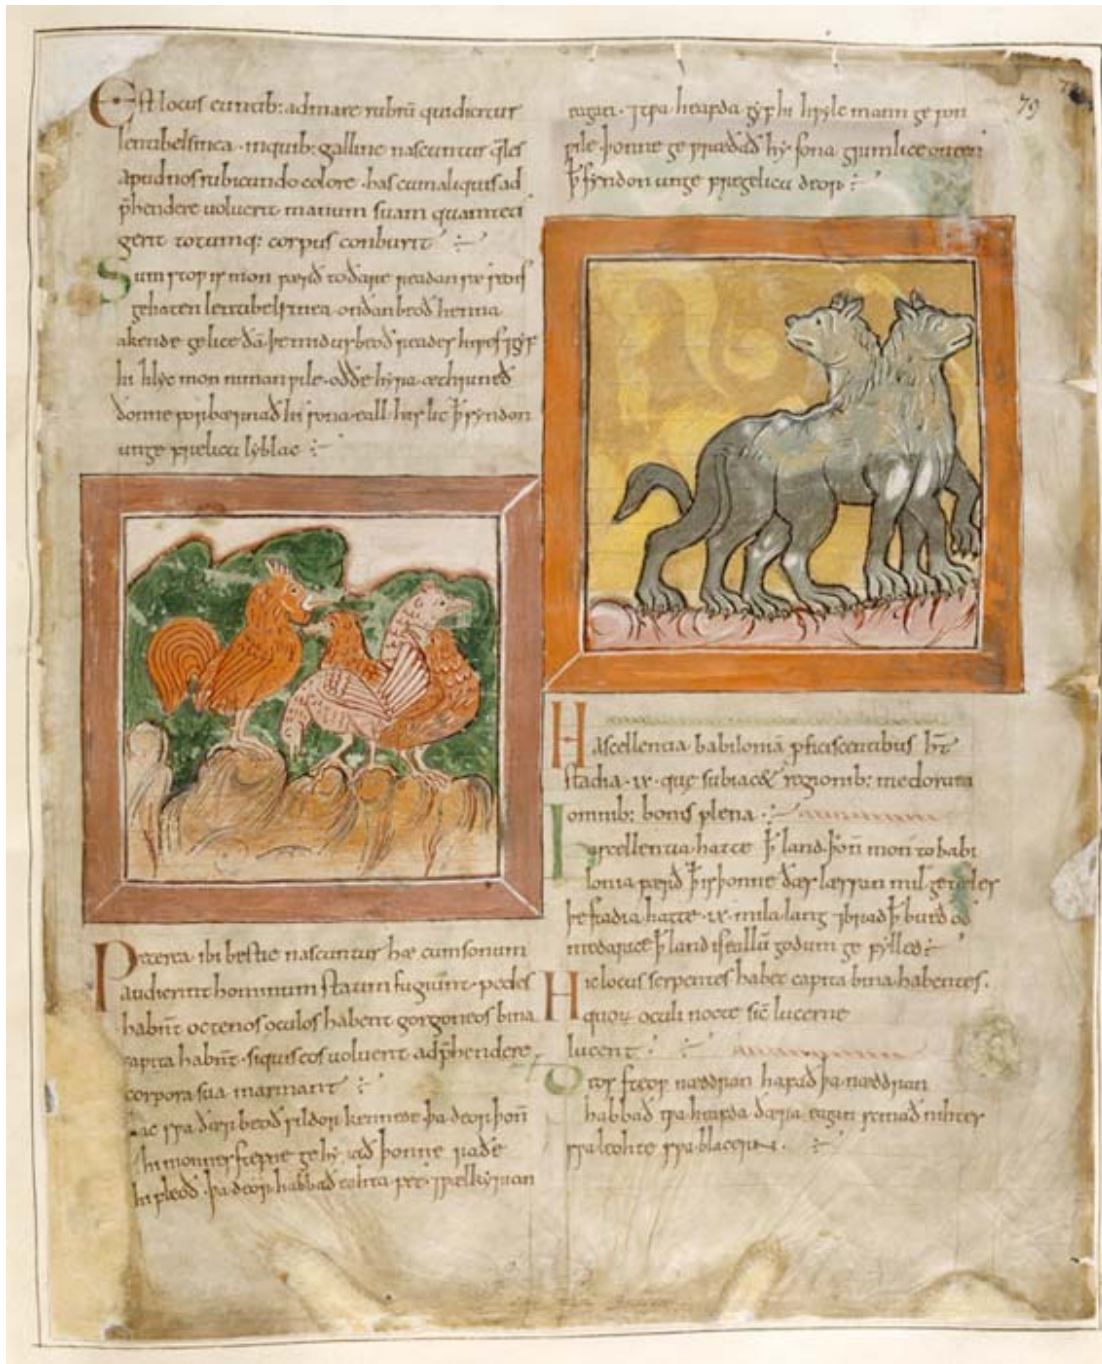 Est locus euntib: admare rubrū quidicitur
lentibelsinea · inquib: galline nascuntur q̄les
apudnos rubicundo colore · has cumaliquis ad
p̄hendere uoluerit manum suam
gerit totumq: corpus conburit
Sum stoƿ is mon færð todare readan sæ
gehaten lentibelsinea · ondan beoð henna
akende gelice ðā · þe mid us beoð reades hiƿes 7 gyf
hi hƿylc mon niman ƿile · oððe hyra æthrineð
ðonne forbærnað hi sona eall his lic ꝥ syndon
unge lyblac
Preterea · ibi bestie nascuntur hæ cumsonum
audierint hominum statim fugiunt · pedes
habn̄t octenos oculos habent gorgoneos bina
capita habn̄t · siquis eos uoluerit adp̄hendere
corpora sua
Eac sƿa ðær beoð ƿildor kennede þa deor þon̄
hi monnes stefne gehyrað þonne
hi fleoð · þa deor habbað eahta fet · 7
eagan · 7 tƿa heafda gyf hi hƿylc mann ge fon
ƿile þonne hy sona
ꝥ syndon unge deor
Hascellentia babiloniā pficiscentibus hn̄t
stadia · ix · que subiac& regionib: medorum
omnib: bonis plena
hatte ꝥ land · þon̄ mon to babi
lonia færð ꝥ is þonne ðæs læssan mil getæles
þe stadia hatte · ix · mila lang 7 brad ꝥ
ꝥ land is eallū godum ge fylled
Hic locus serpentes habet capita bina habentes ·
quoꝝ oculi nocte sic̄ lucerne
lucent
næddran hafað þa næddran
habbað tƿa heafda ðæra eagan scinað nihtes
sƿa leohte sƿa blacern ·
79